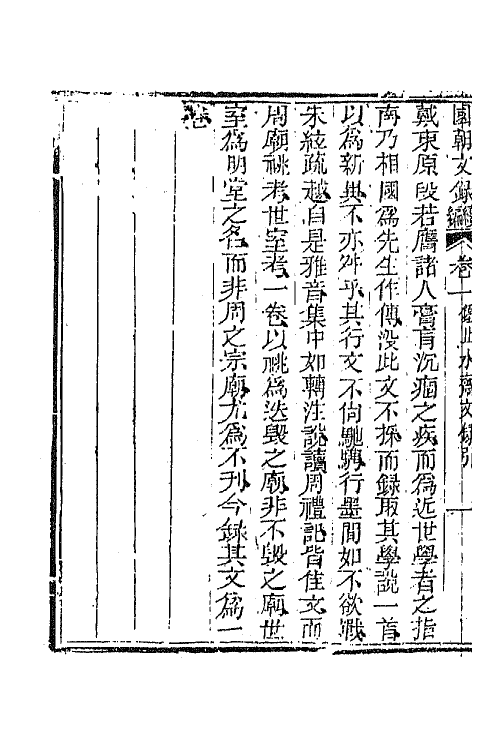 國朝文錄續編 卷一 鑑止水齋文錄引 一
戴東原段若膺諸人膏肓沉痼之疾而為近世學者之指
南乃相國為先生作傳沒此文不採而錄取其學說一首
以為新異不亦舛乎其行文不尙馳騁行墨間如不欲戰
朱絃疏越自是雅音集中如轉注說讀周禮記皆佳文而
周廟祧考世室考一卷以祧為迭毀之廟非不毀之廟世
室為明堂之名而非周之宗廟尤為不刊今錄其文為一
卷